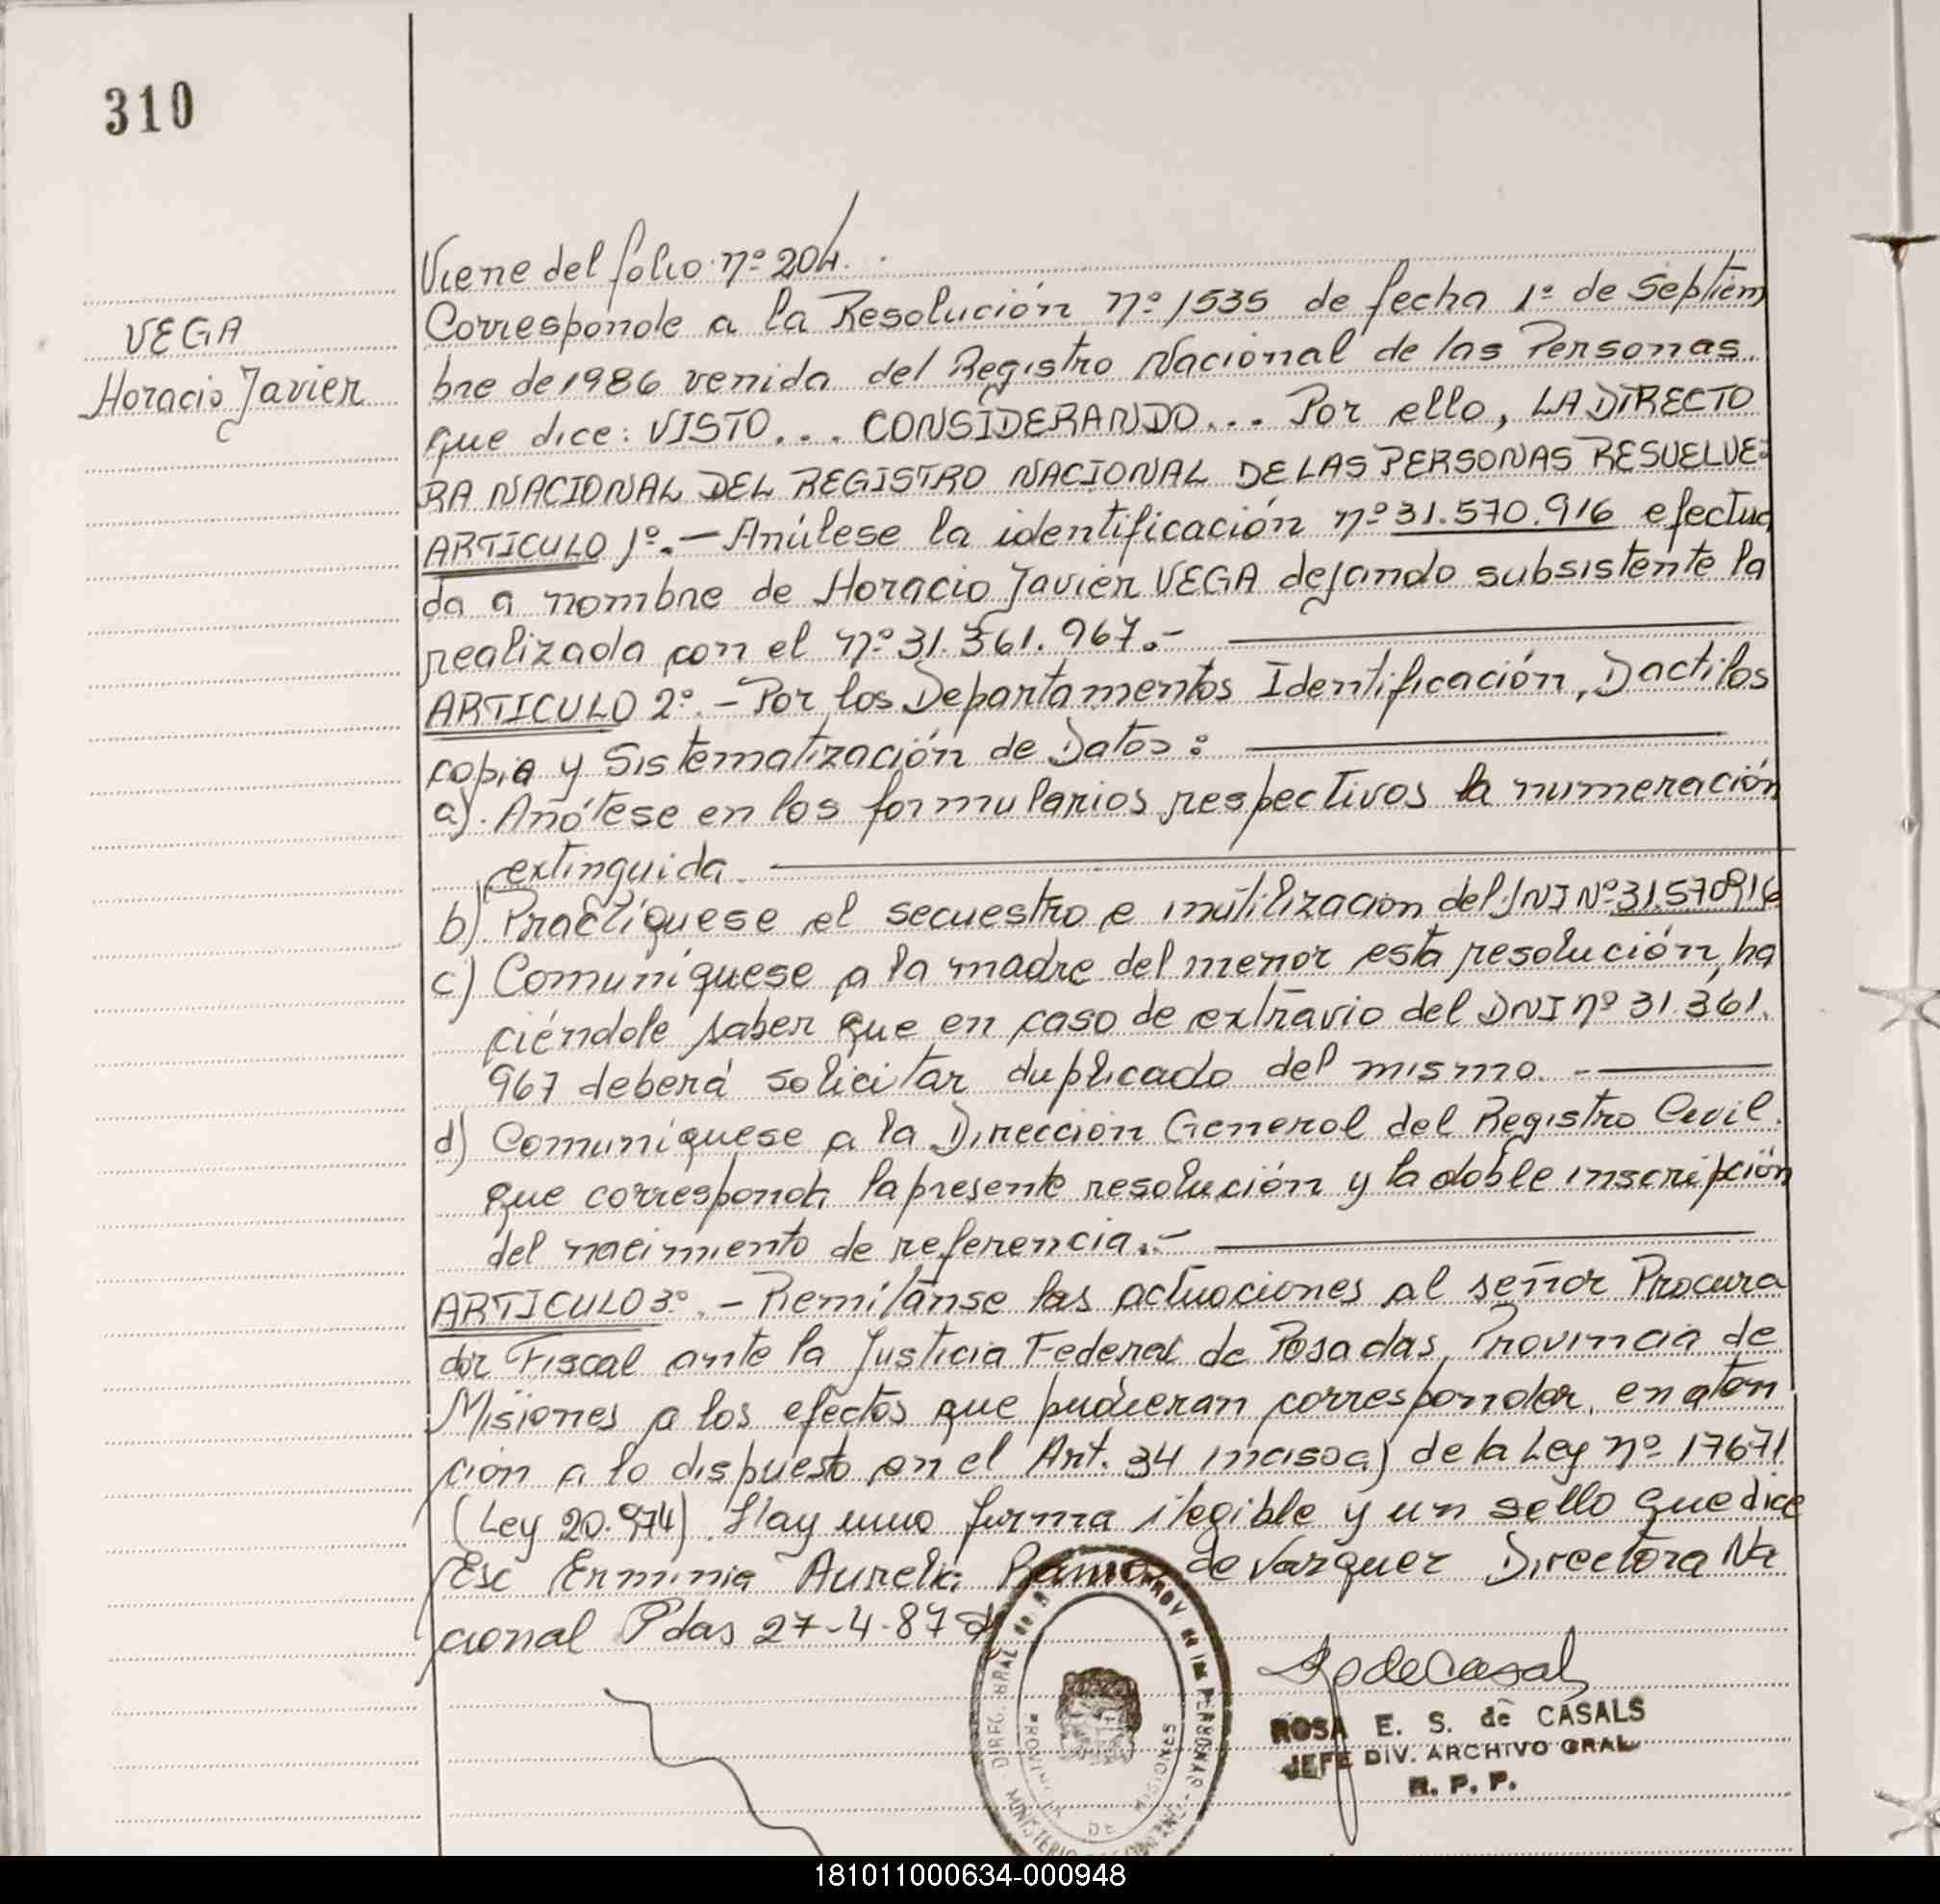 310
VEGA
Horacio Javier
Viene del folio nº 204.
Corresponde a la Resolución nº 1535 de fecha 1º de Septiem
bre de 1986 venida del Registro Nacional de las Personas.
que dice: VISTO... CONSIDERANDO... Por ello, LA DIRECTO
RA NACIONAL DEL REGISTRO NACIONAL DE LAS PERSONAS RESUELVE:
ARTICULO 1º.- Anúlese la identificación nº 31.570.916 efectua
da a nombre de Horacio Javier VEGA dejando subsistente la
realizada con el nº 31.361.967.-
ARTICULO 2º.- Por los Departamentos Identificación, Dactilos
copia y Sistematización de Datos:
a). Anótese en los formularios respectivos la numeración
extinguida.
b) Practíquese el secuestro e inutilización del DNI Nº 31.570916
c) Comuníquese a la madre del menor esta resolución, ha
ciéndole saber que en caso de extravio del DNI nº 31.361.
967 deberá solicitar duplicado del mismo.-
d) Comuníquese a la Dirección General del Registro Civil.
que corresponda la presente resolución y la doble inscripción
del nacimiento de referencia.-
ARTICULO 3º.- Remítanse las actuaciones al señor Procura
dor Fiscal ante la Justicia Federal de Posadas, Provincia de
Misiones a los efectos que pudieran corresponder, en aten
ción a lo dispuesto en el Art. 34 inciso a) de la Ley nº 17671
(Ley 20.974). Hay una firma ilegible y un sello que dice
Esc Erminia Aurelia Ramos de Vazquez Directora Na
cional Pdas 27-4-87
DIREC. GRAL de R. PROV. de las PERSONAS
PROVINCIA DE MISIONES
MINISTERIO
ROSA E. S. de CASALS
JEFE DIV. ARCHIVO GRAL
R. P. P.
181011000634-000948